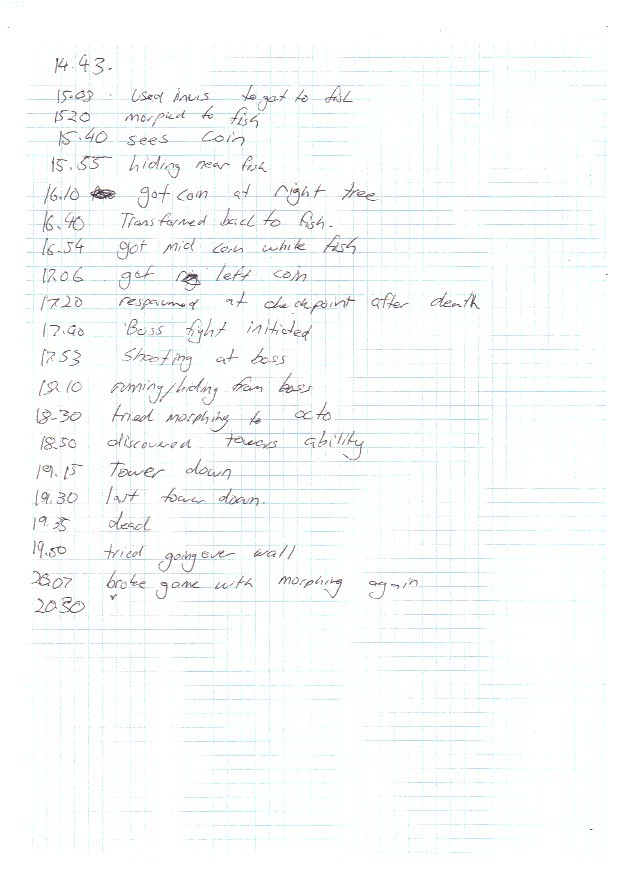 14.43.
15.03 Used invis to get to fish
1520 morpied to fish
15.40 sees coin
15.55 hiding near fish
16.10 got coin at right tree
16.40 Transformed back to fish.
16.54 got mid coin while fish
17.06 got left coin
17.20 respawned at checkpoint after death
17.40 Boss fight initiated
17.53 Shooting at boss
18.10 running/hiding from boss
18-30 tried morphing to octo
18.50 discovered towers ability
19.15 Tower down
19.30 last tower down.
19.35 dead
19.50 tried going over wall
20.07 broke game with morphing again
20.30